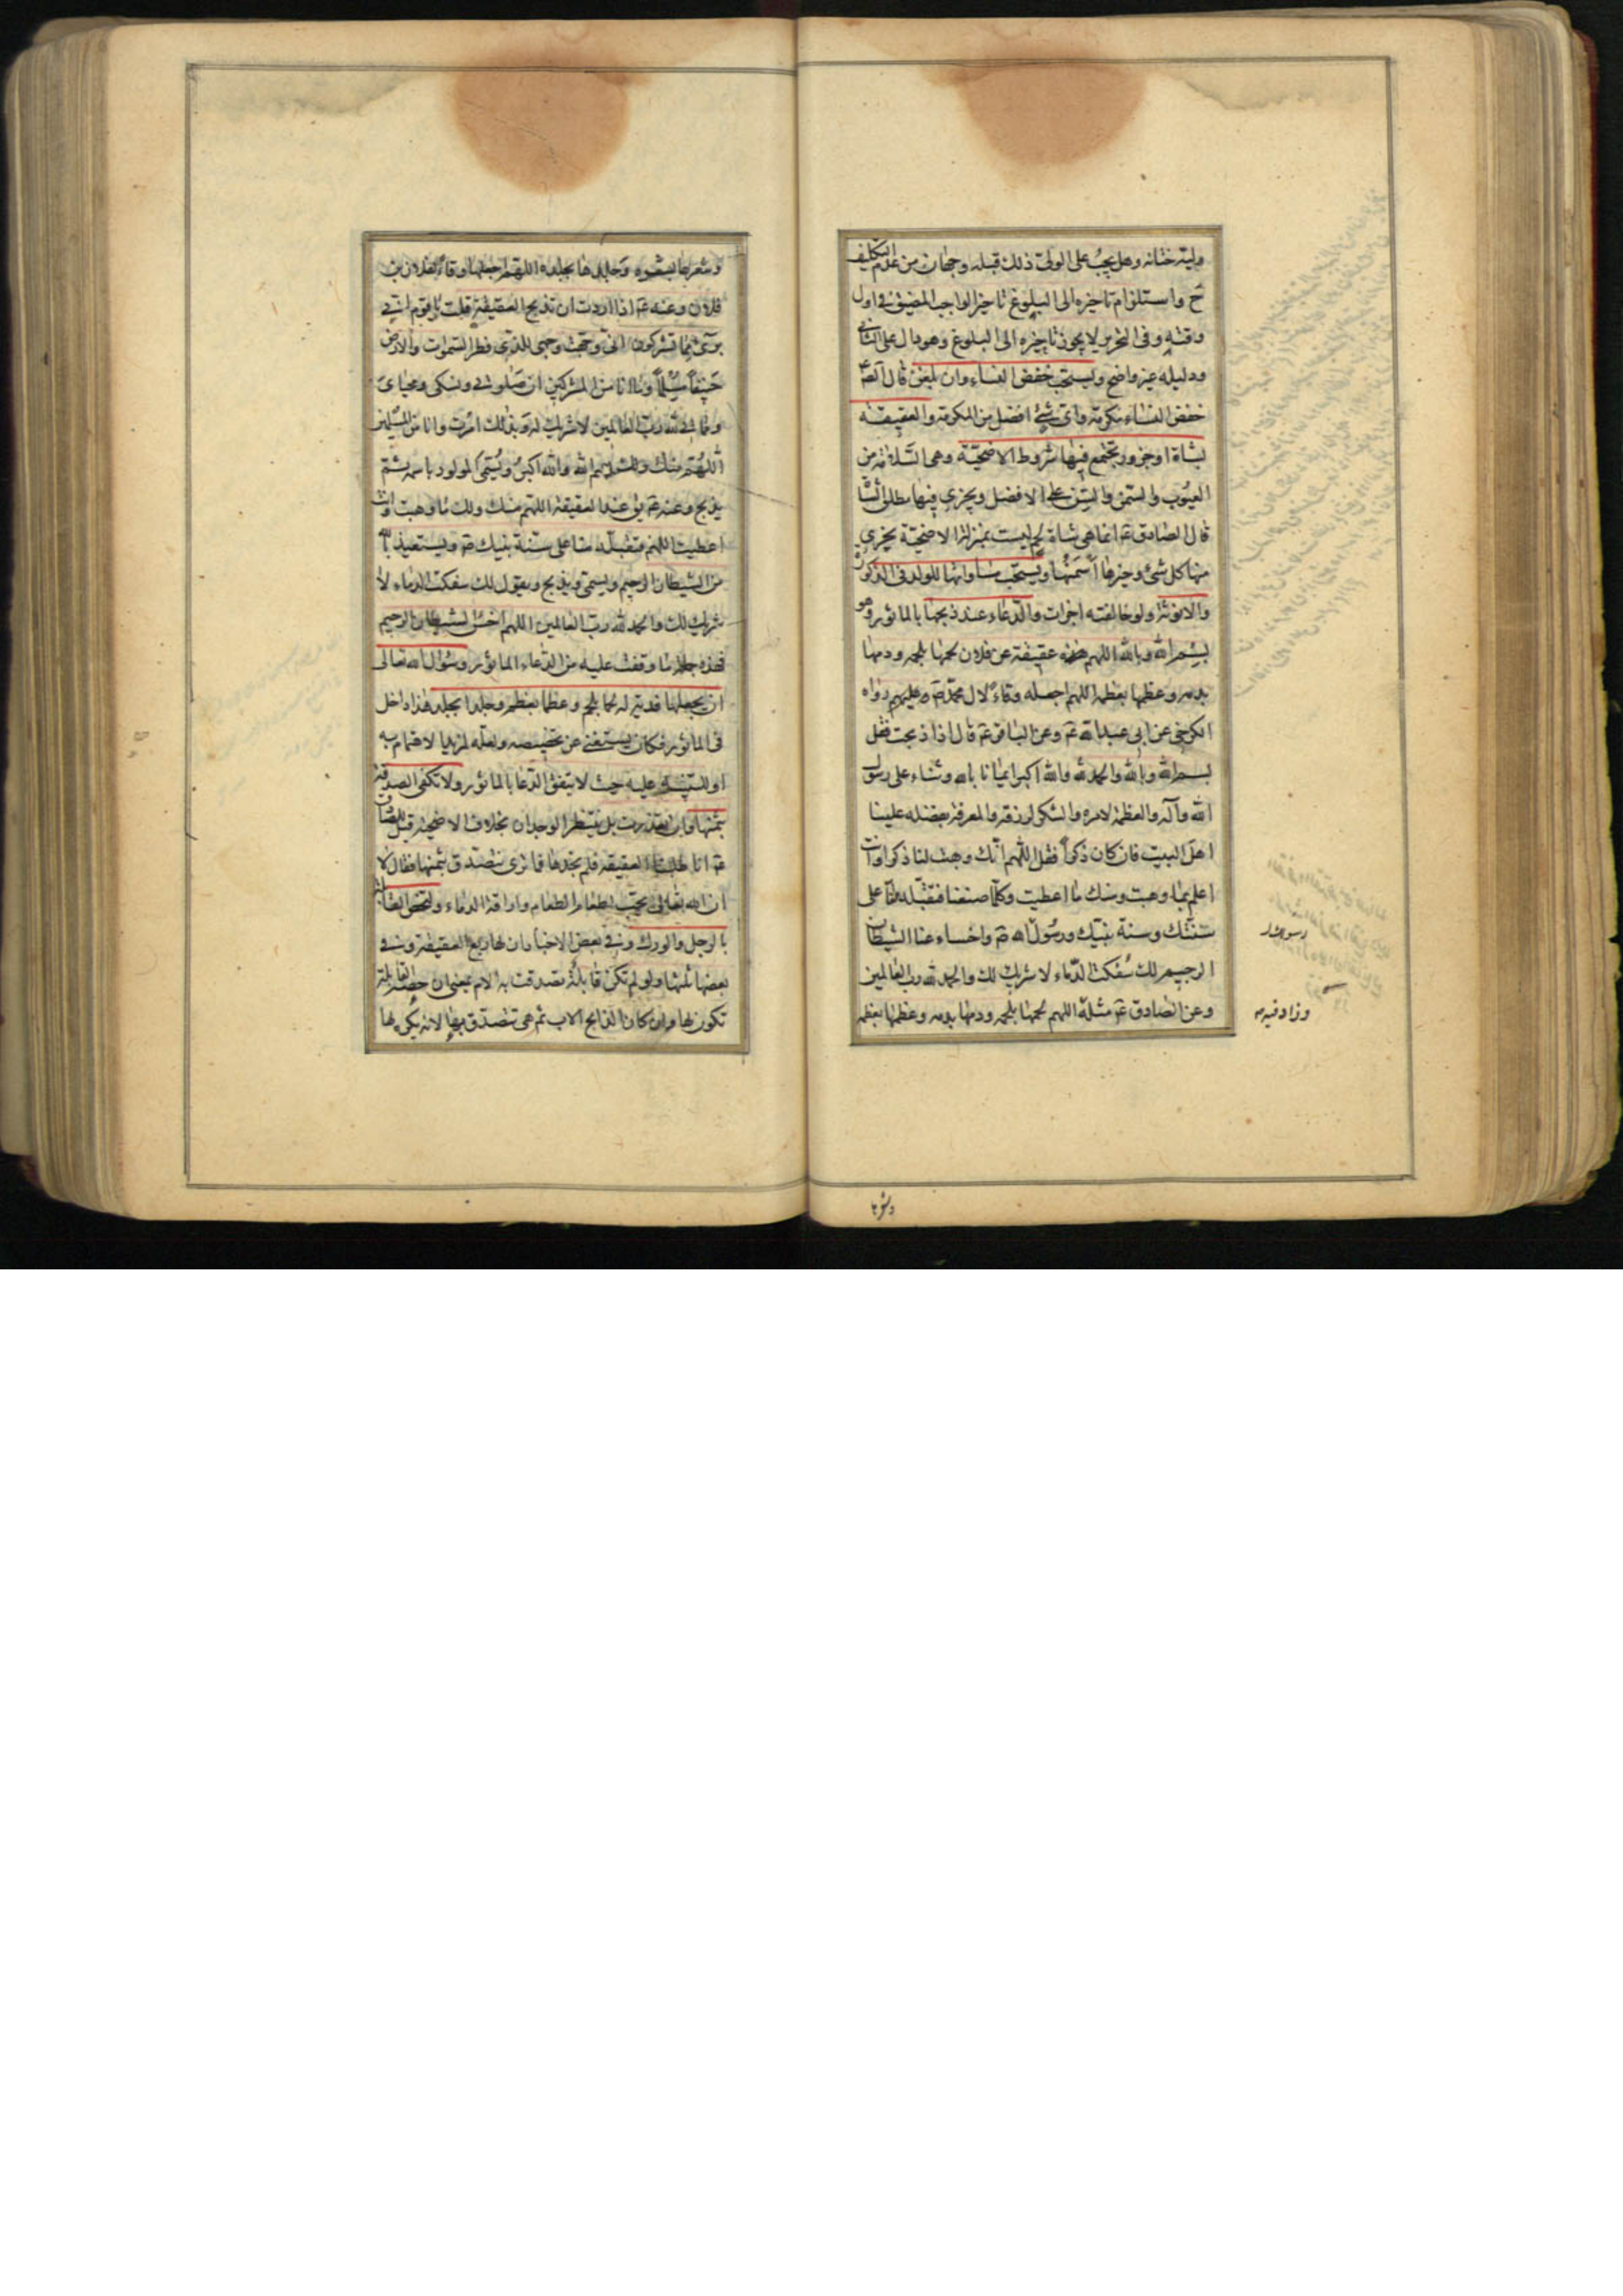 وليّه ختانه وهل يجب على الولي ذلك قبله وجهان من عدم التكليف
ح واستلزام تاخيره الى البلوغ تاخير الواجب المضيق في اول
وقته وفي التحرير لا يجوز تاخيره الى البلوغ وهو دال على الثاني
ودليله غير واضح ويستحب خفض النساء وان بلغن قال الصّ
خفض النساء مكرمة واي شيء افضل من المكرمة والعقيقة
بشاة او جزور يجتمع فيها شروط الاضحيّة وهي السّلامة من
العيوب والسمن والسّن على الافضل ويجزي فيها مطلق الشا
قال الصادق ع انما هي شاة لحم ليست بمنزلة الاضحيّة يجزي
منها كل شئ وخيرها اسمنها ويستحب مساواتها للولد في الذكورة
والانوثة ولو خالفته اجزات والدعاء عند ذبحها بالماثور وهو
بسم الله وبالله اللهم هذه عقيقة عن فلان لحمها بلحمه ودمها
بدمه وعظمها بعظمه اللهم اجعله وقاءً لال محمّد ص عليهم رواه
الكرخي عن ابي عبدالله ع وعن الباقر ع قال اذا ذبحت فقل
بسم الله وبالله والحمد لله والله اكبر ايمانا بالله وثناء على رسول
الله وآله والعظمة لامره والشكر لرزقه والمعرفة بفضله علينا
اهل البيت فان كان ذكراً فقل اللهم انك وهبت لنا ذكرا وانت
اعلم بما وهبت ومنك ما اعطيت وكلّما صنعنا فتقبّله منّا على
سنّتك وسنة نبيّك ورسول الله ص واخساء عنا الشيطان
الرجيم لك سُفكت الدّماء لا شريك لك والحمد لله رب العالمين
وعن الصادق ع مثله اللهم لحمها بلحمه ودمها بدمه وعظمها بعظمه
وزاد فيه
وشعرها
وشعرها بشعره وجلدها بجلده اللهم اجعلها وقاءً لفلان بن
فلان وعنه ع اذا اردت ان تذبح العقيقة قلت يا قوم اني
بريء مما تشركون اني وجهت وجهي للذي فطر السموات والارض
حنيفاً مسلماً وما انا من المشركين ان صلوتي ونسكي ومحياي
ومماتي لله رب العالمين لا شريك له وبذلك امرت وانا من المسلمين
اللهم منك ولك بسم الله والله اكبر ويسمّي المولود باسمه ثم
يذبح وعنه ع يق عند العقيقة اللهم منك ولك ما وهبت وانت
اعطيت اللهم فتقبله منا على سنّة نبيك ص ويستعيذ بالله
من الشيطان الرجيم ويسمّي ويذبح ويقول لك سفكت الدماء لا
شريك لك والحمد لله رب العالمين اللهم اخسأ الشيطان الرجيم
فهذه جملة ما وقفت عليه من الدعاء الماثور وسؤال الله تعالى
ان يجعلها فدية له لحما بلحم وعظما بعظم وجلدا بجلد هذا داخل
في الماثور فكان يستغني عن تخصيصه ولعلّه لمزيد الاهتمام به
او للتنبيه عليه حيث لا يتفق الدّعا بالماثور ولا تكفي الصدقة
بثمنها وان تعذرت بل ينتظر الوجدان بخلاف الاضحية قيل للصّادق
ع انا طلبنا العقيقة فلم نجدها فما ترى نتصدق بثمنها فقال لا
ان الله تعالى يحبّ اطعام الطعام واراقة الدماء ولتخص القابلة
بالرجل والورك وفي بعض الاخبار ان لها ربع العقيقة وفي
بعضها ثلثها ولو لم تكن قابلة تصدقت به الام بمعنى ان حصة القابلة
تكون لها وان كان الذابح الاب ثم هي تتصدّق بها لانه يكره لها